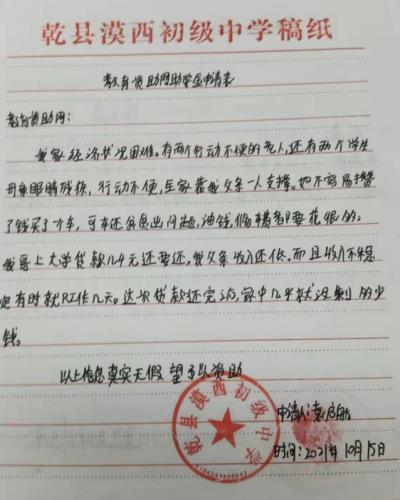 乾县漠西初级中学稿纸
教育资助网助学金申请表
教育资助网：
我家经济状况困难。有两个行动不便的老人，还有两个学生
母亲眼睛残疾，行动不便，全家靠我父亲一人支撑。好不容易攒
了钱买了个车，可车还会出问题，油钱，修车费都要花很多。
我哥上大学贷款几千元还要还，我父亲收入还低。而且收入不稳
定有时就只工作几天。这次贷款还完后，家中几乎就没剩多少
钱。
以上信息真实无假 望予以资助
乾县漠西初级中学
申请人：
时间：2021年10月15日